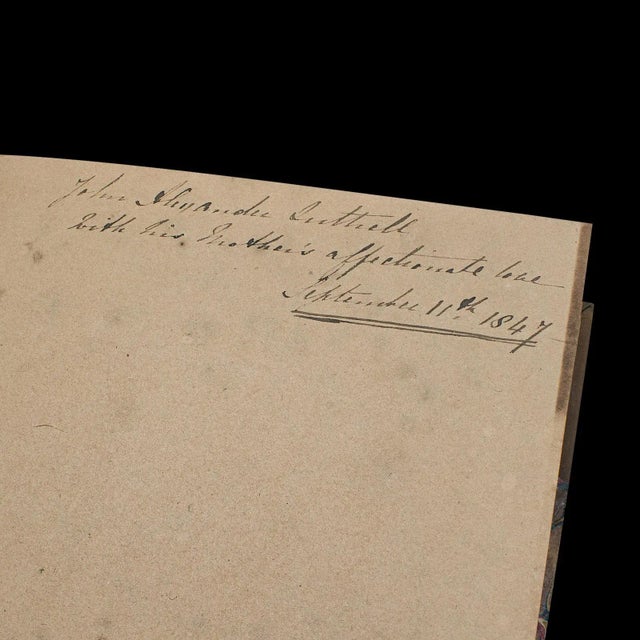 John Alexander Luttrell
with his Mother's affectionate love
September 11th 1847